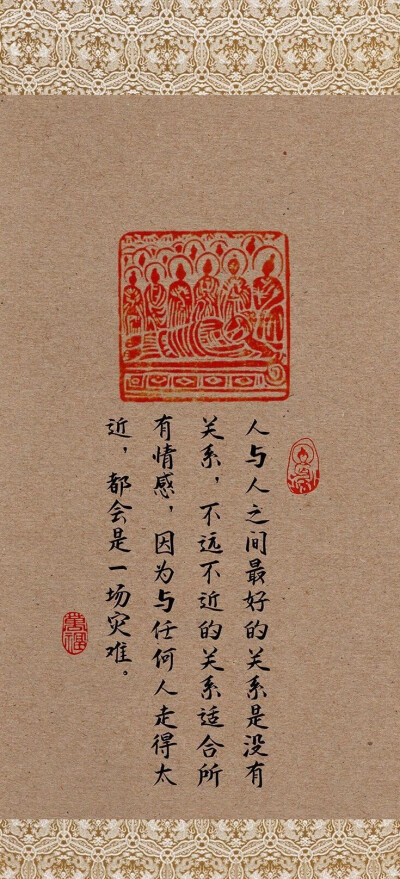 人与人之间最好的关系是没有
关系，不远不近的关系适合所
有情感，因为与任何人走得太
近，都会是一场灾难。
萬福